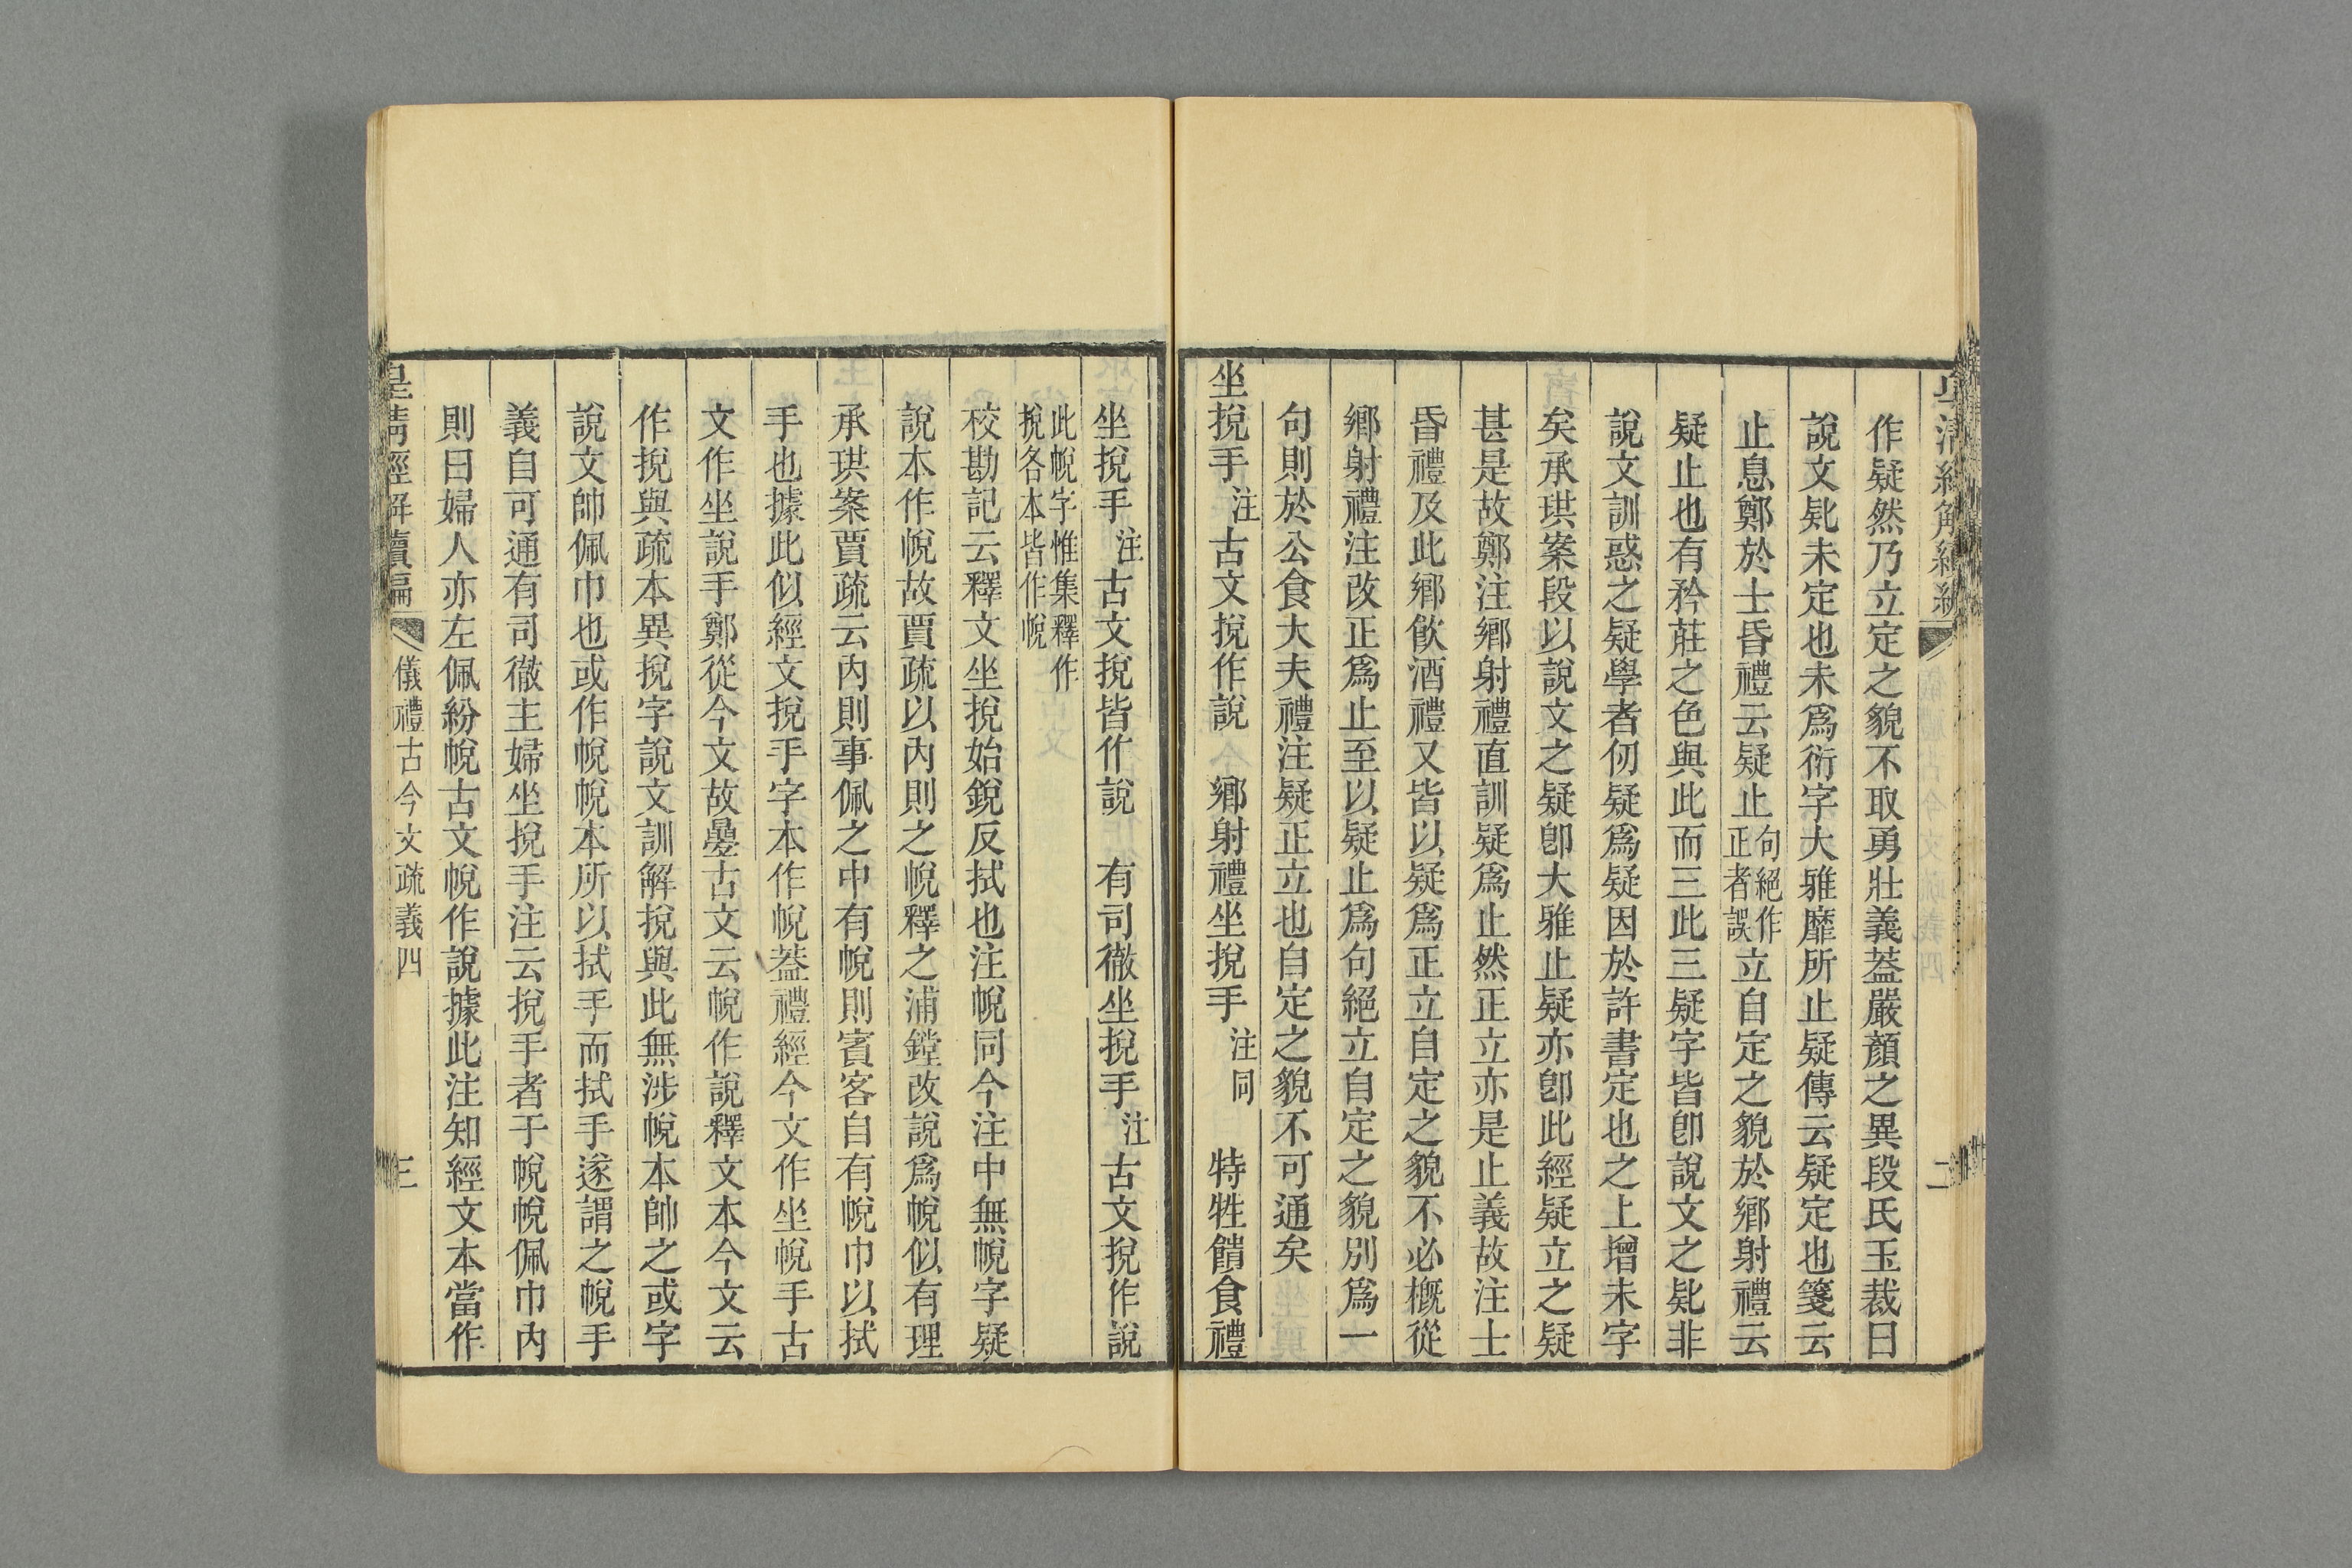 皇清經解續編
二
作疑然乃立定之貌不取勇壯義葢嚴顏之異段氏玉裁曰
說文𠤕未定也未爲衍字大雅靡所止疑傳云疑定也箋云
止息鄭於士昏禮云疑止句絕作正者誤立自定之貌於鄉射禮云
疑止也有矜莊之色與此而三此三疑字皆卽說文之𠤕非
說文訓惑之疑學者仞疑爲疑因於許書定也之上增未字
矣承珙案段以說文之疑卽大雅止疑亦卽此經疑立之疑
甚是故鄭注鄉射禮直訓疑爲止然正立亦是止義故注士
昏禮及此鄉飮酒禮又皆以疑爲正立自定之貌不必槪從
鄉射禮注改正爲止至以疑止爲句絕立自定之貌別爲一
句則於公食大夫禮注疑正立也自定之貌不可通矣
坐挩手注古文挩作說 鄉射禮坐挩手注同 特牲饋食禮
坐挩手注古文挩皆作說 有司徹坐挩手注古文挩作說
此帨字惟集釋作
挩各本皆作帨
校勘記云釋文坐挩始銳反拭也注帨同今注中無帨字疑
說本作帨故賈疏以內則之帨釋之浦鏜改說爲帨似有理
承珙案賈疏云內則事佩之中有帨則賓客自有帨巾以拭
手也據此似經文挩手字本作帨葢禮經今文作坐帨手古
文作坐說手鄭從今文故疊古文云帨作說釋文本今文云
作挩與疏本異挩字說文訓解挩與此無涉帨本帥之或字
說文帥佩巾也或作帨帨本所以拭手而拭手遂謂之帨手
義自可通有司徹主婦坐挩手注云挩手者于帨帨佩巾內
則曰婦人亦左佩紛帨古文帨作說據此注知經文本當作
皇淸經解續編
儀禮古今文疏義四
三